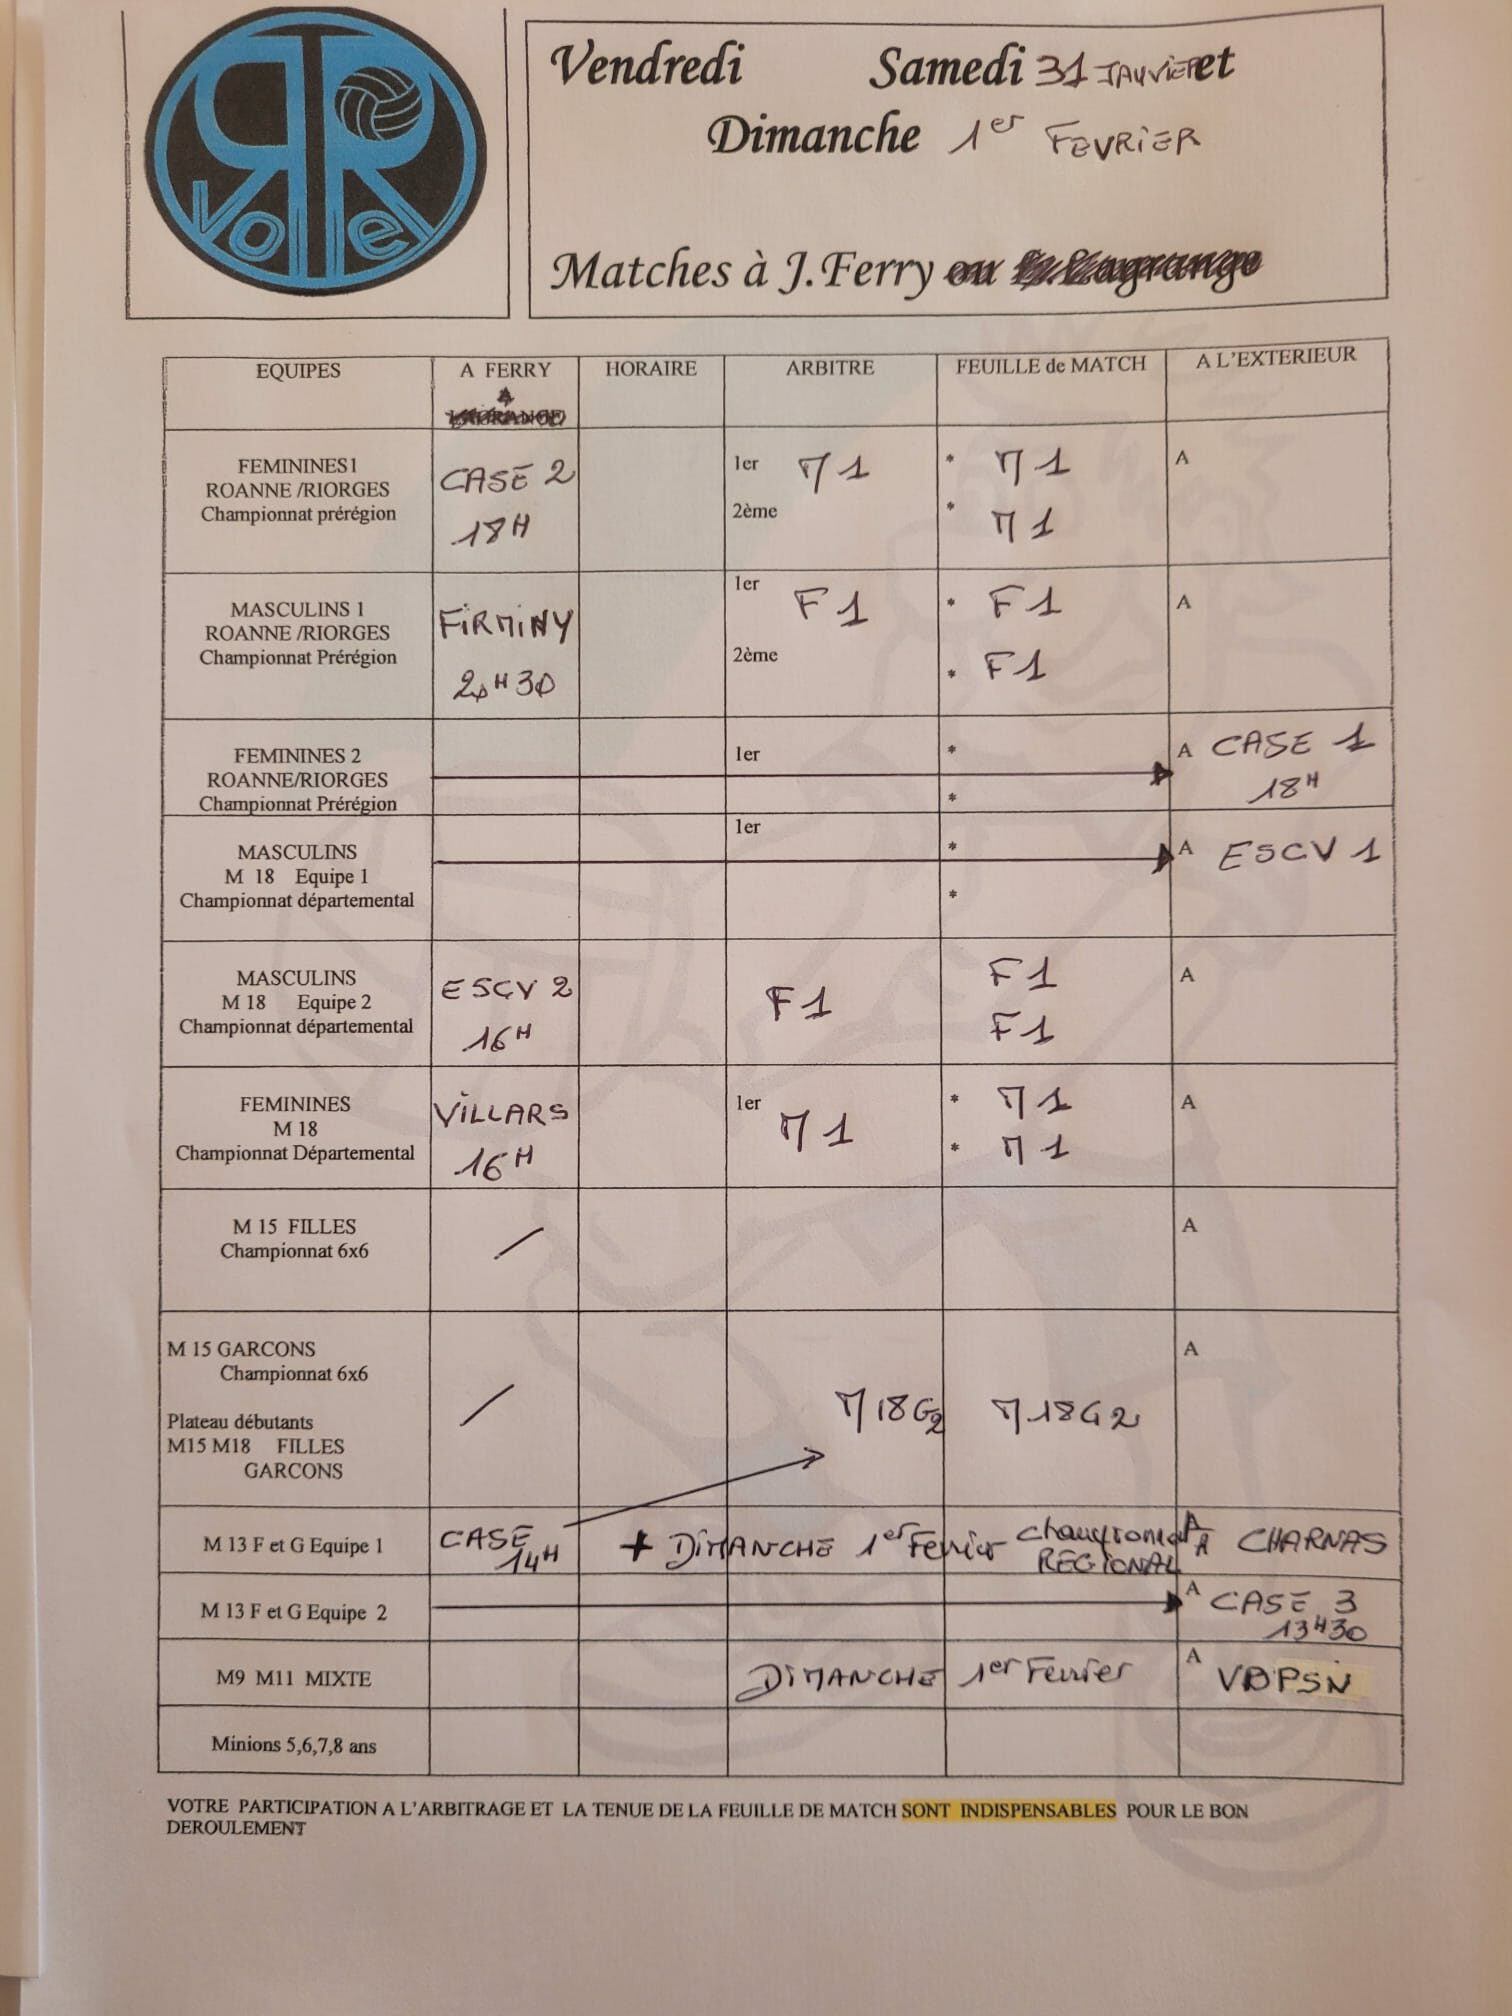 Vendredi Samedi 31 JANVIER et
Dimanche 1er FEVRIER
Matches à J.Ferry ou L.Lagrange
Volley
EQUIPES A FERRY HORAIRE ARBITRE FEUILLE de MATCH A L'EXTERIEUR
A
LAGRANGE
FEMININES1
ROANNE /RIORGES
Championnat prérégion
CASE 2
18H
1er M1
2ème
* M1
* M1
A
MASCULINS 1
ROANNE /RIORGES
Championnat Prérégion
FIRMINY
20H30
1er F1
2ème
* F1
* F1
A
FEMININES 2
ROANNE/RIORGES
Championnat Prérégion
1er
*
*
A CASE 1
18H
MASCULINS
M 18 Equipe 1
Championnat départemental
1er
*
*
A ESCV 1
MASCULINS
M 18 Equipe 2
Championnat départemental
ESCV 2
16H
F1
F1
F1
A
FEMININES
M 18
Championnat Départemental
VILLARS
16H
1er M1
* M1
* M1
A
M 15 FILLES
Championnat 6x6
/
A
M 15 GARCONS
Championnat 6x6
Plateau débutants
M15 M18 FILLES
GARCONS
/
M18G2
M18G2
A
M 13 F et G Equipe 1
CASE
14H
+ DIMANCHE 1er Fevrier Championnat
REGIONAL
A
A CHARNAS
M 13 F et G Equipe 2
A CASE 3
13H30
M9 M11 MIXTE
DIMANCHE 1er Fevrier
A VBPSN
Minions 5,6,7,8 ans
VOTRE PARTICIPATION A L'ARBITRAGE ET LA TENUE DE LA FEUILLE DE MATCH SONT INDISPENSABLES POUR LE BON
DEROULEMENT